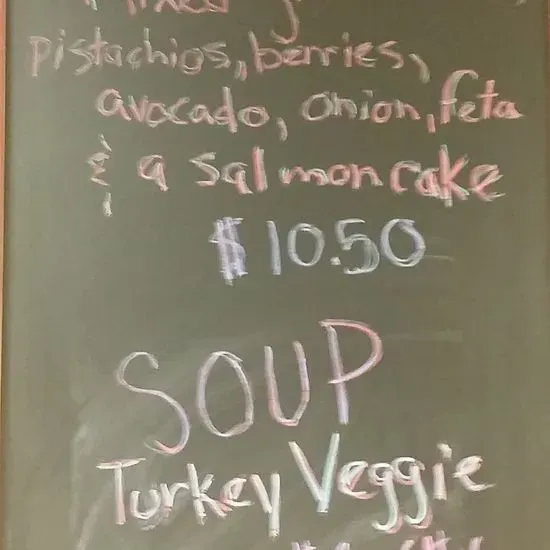 mixed
pistachios, berries,
avocado, onion, feta
& a salmon cake
$10.50
SOUP
Turkey Veggie